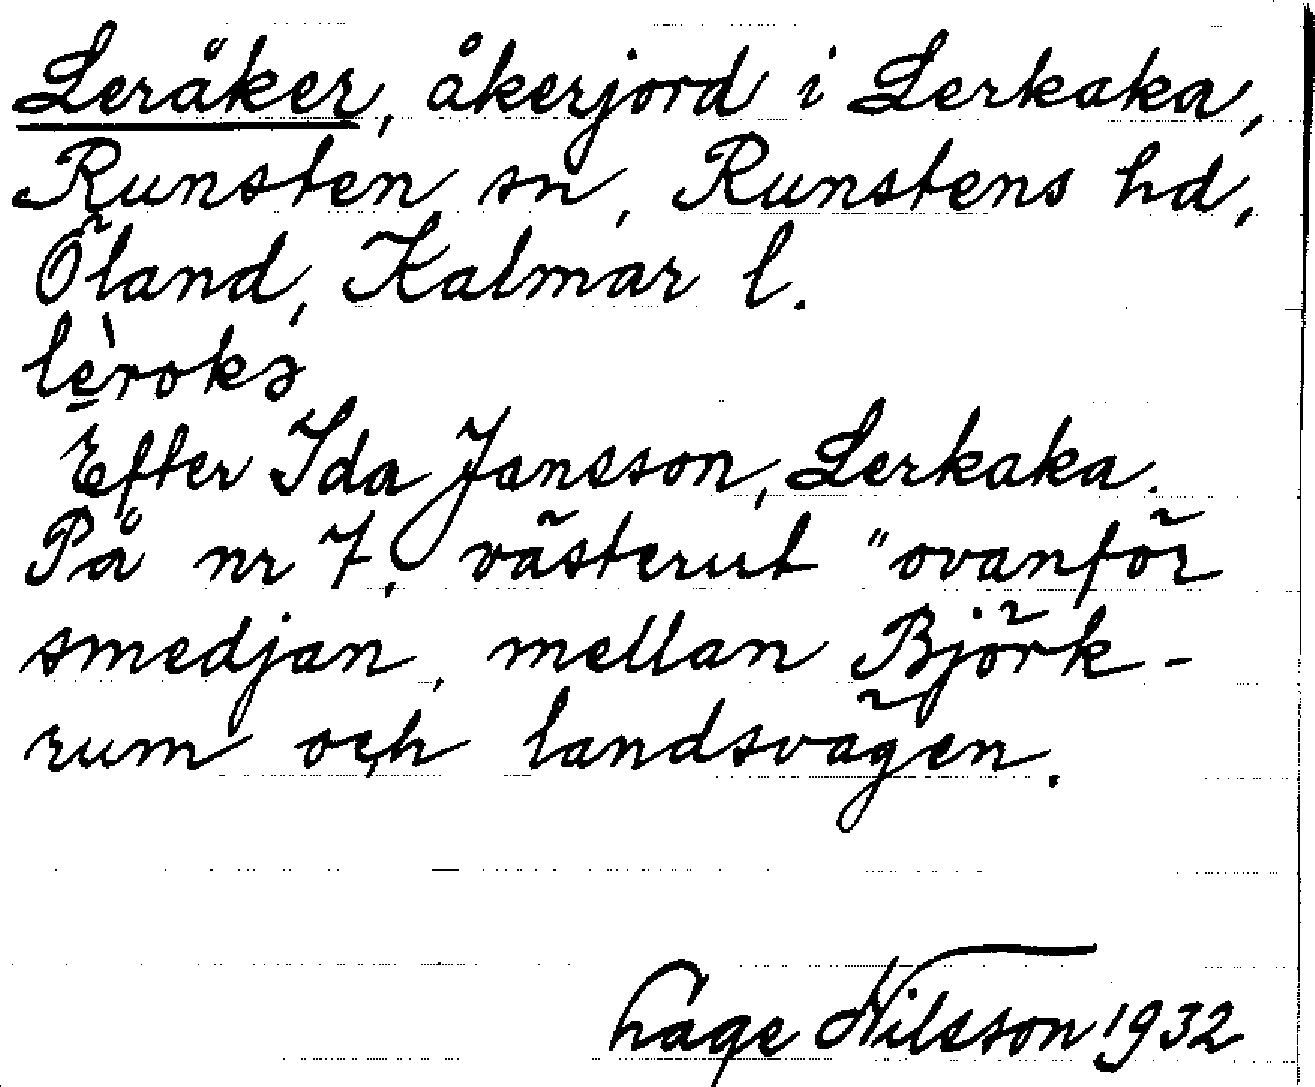 Leråker, åkerjord i Lerkaka,
Runsten sn, Runstens hd,
Öland, Kalmar l.
lè̠rokə
Efter Ida Jansson, Lerkaka.
På nr 7, västerut "ovanför
smedjan, mellan Björk-
rum och landsvägen.
Hage Nilsson 1932